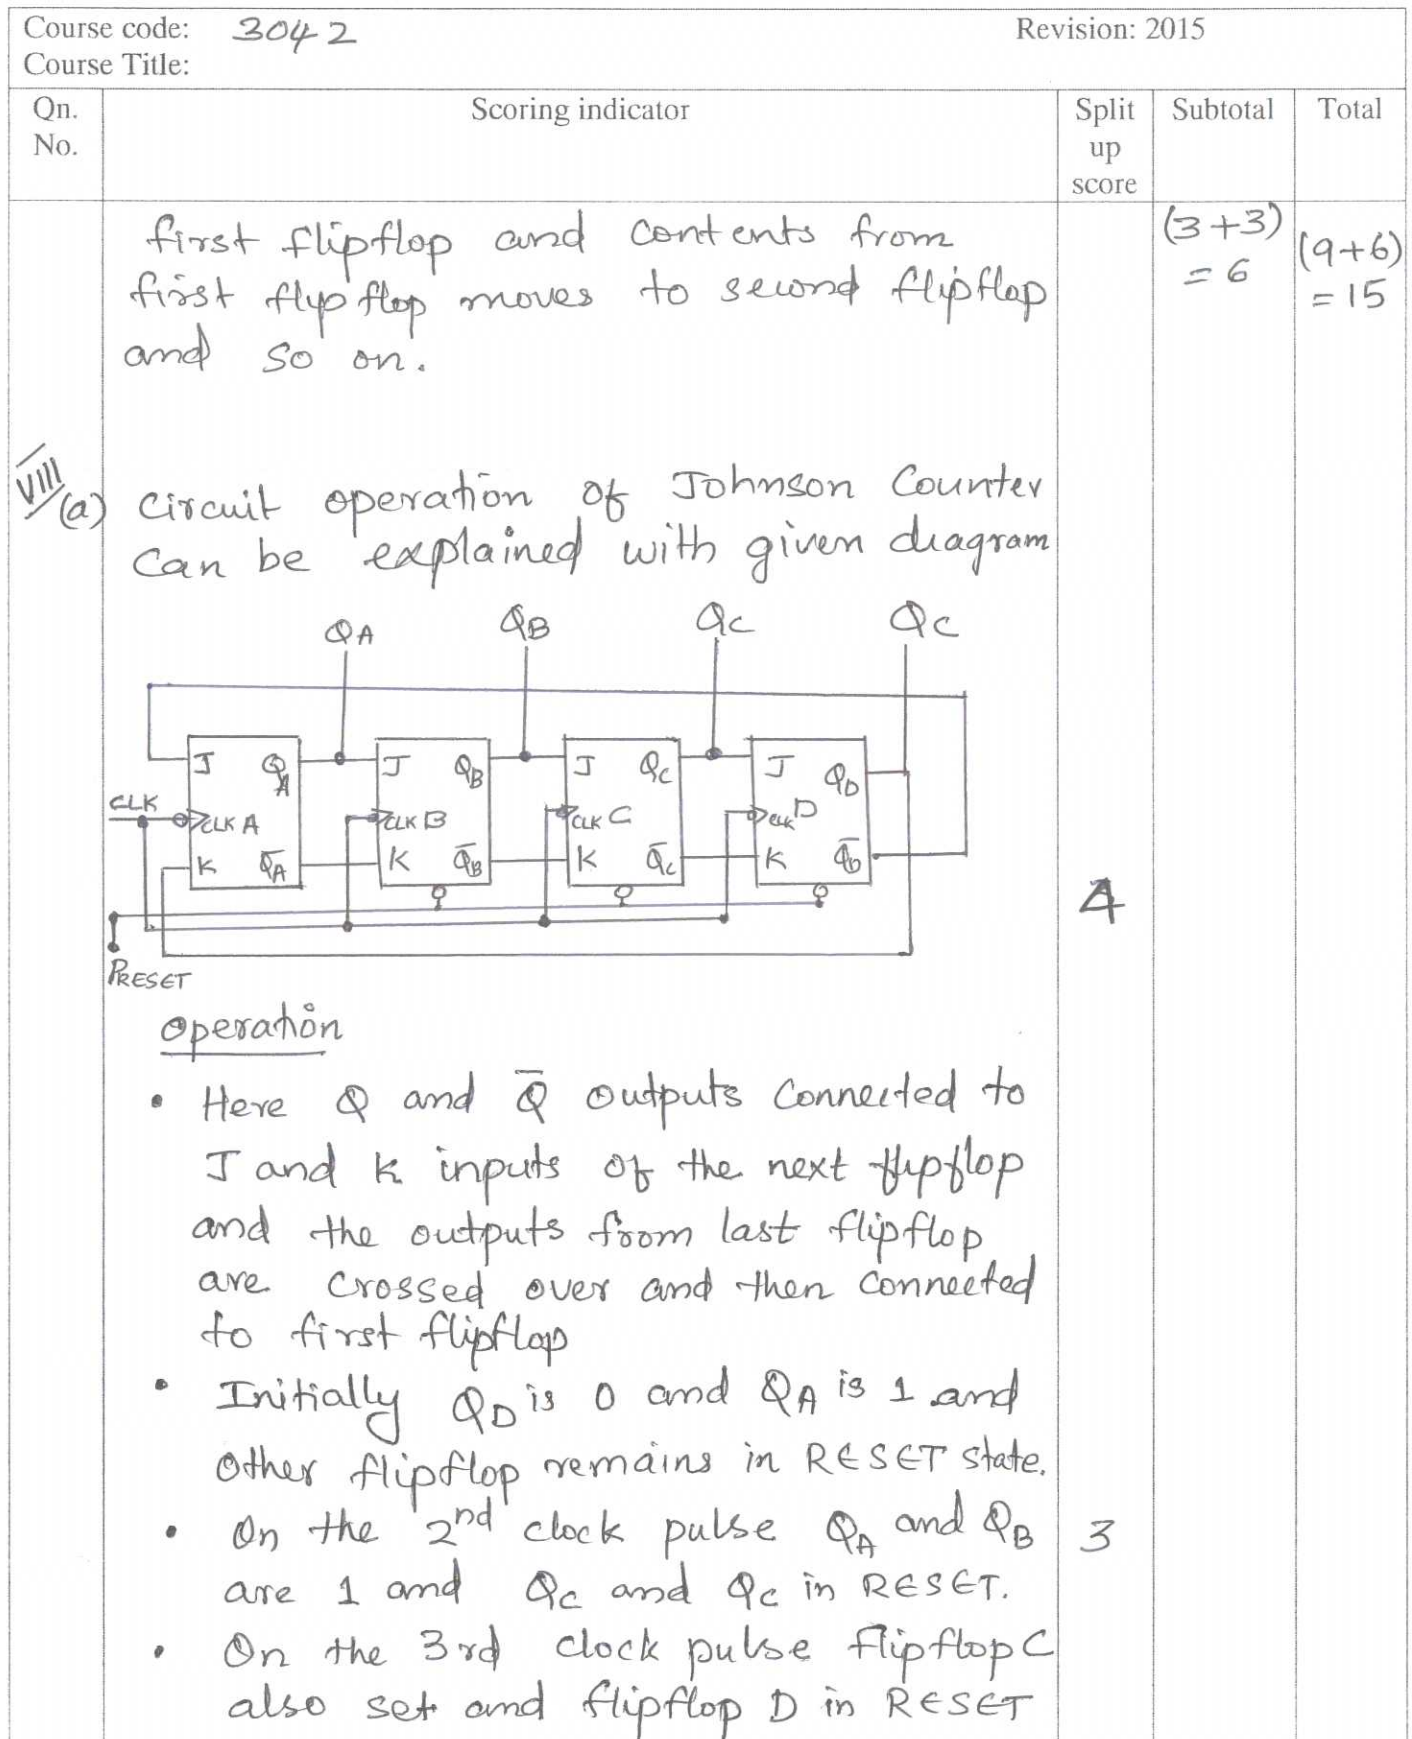 Course code: 3042 Revision: 2015
Course Title:
Qn. No. Scoring indicator Split up score Subtotal Total
first flipflop and contents from
first flypflop moves to second flipflop
and so on.
(3+3) = 6
(9+6) = 15
VIII (a) Circuit operation of Johnson Counter
can be explained with given diagram
QA QB QC QC
J QA J QB J QC J QD
CLK CLK A CLK B CLK C CLK D
K Q̅A K Q̅B K Q̅C K Q̅D
4
PRESET
operation
• Here Q and Q̅ outputs connected to
J and K inputs of the next flipflop
and the outputs from last flipflop
are crossed over and then connected
to first flipflop
• Initially QD is 0 and QA is 1 and
other flipflop remains in RESET state.
• On the 2nd clock pulse QA and QB 3
are 1 and QC and QC in RESET.
• On the 3rd clock pulse flipflop C
also set and flipflop D in RESET